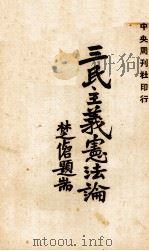 中央周刊社印行
三民主義憲法論
楚傖題耑